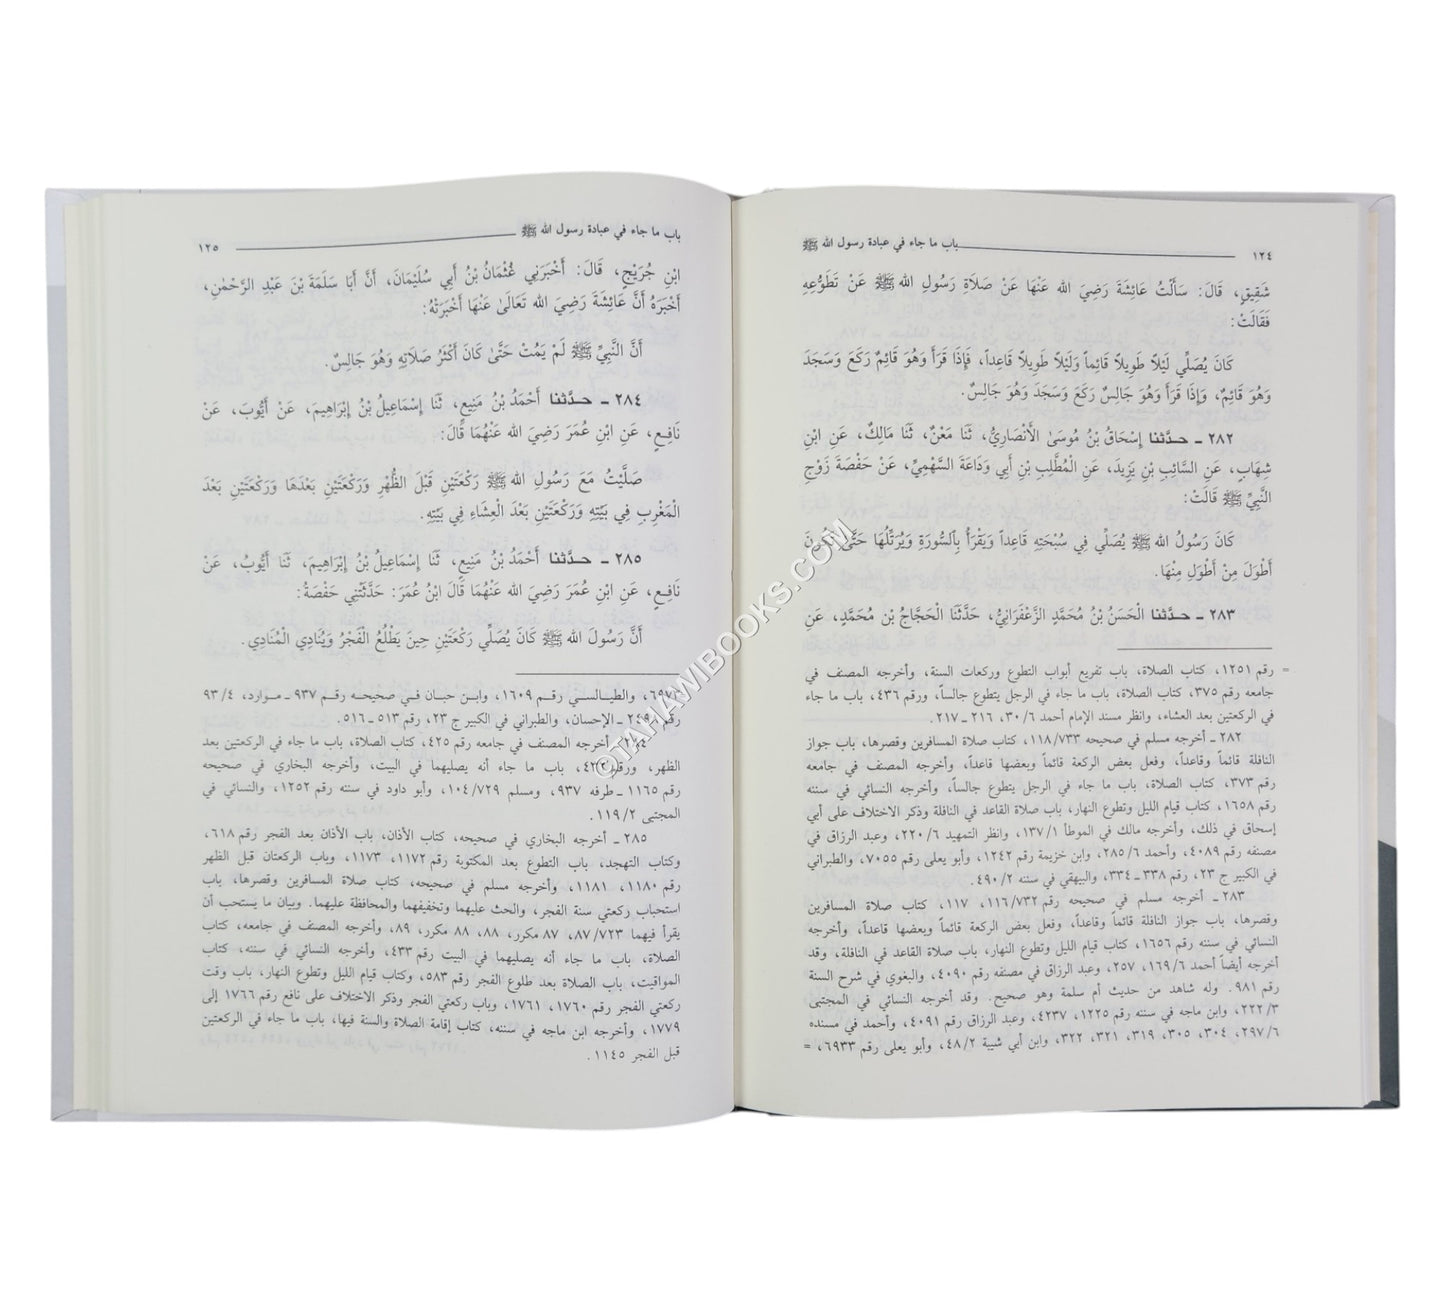 ١٢٤ باب ما جاء في عبادة رسول الله ﷺ
شَقِيقٍ، قَالَ: سَأَلْتُ عَائِشَةَ رَضِيَ الله عَنْهَا عَنْ صَلَاةِ رَسُولِ الله ﷺ عَنْ تَطَوُّعِهِ
فَقَالَتْ:
كَانَ يُصَلِّي لَيْلاً طَوِيلاً قَائِماً وَلَيْلاً طَوِيلاً قَاعِداً، فَإِذَا قَرَأَ وَهُوَ قَائِمٌ رَكَعَ وَسَجَدَ
وَهُوَ قَائِمٌ، وَإِذَا قَرَأَ وَهُوَ جَالِسٌ رَكَعَ وَسَجَدَ وَهُوَ جَالِسٌ.
٢٨٢ ـ حدّثنا إِسْحَاقُ بْنُ مُوسَىٰ الْأَنْصَارِيُّ، ثَنَا مَعْنٌ، ثَنَا مَالِكٌ، عَنِ ابْنِ
شِهَابٍ، عَنِ السَّائِبِ بْنِ يَزِيدَ، عَنِ الْمُطَّلِبِ بْنِ أَبِي وَدَاعَةَ السَّهْمِيِّ، عَنْ حَفْصَةَ زَوْجِ
النَّبِيِّ ﷺ قَالَتْ:
كَانَ رَسُولُ الله ﷺ يُصَلِّي فِي سُبْحَتِهِ قَاعِداً وَيَقْرَأُ بِالسُّورَةِ وَيُرَتِّلُهَا حَتَّىٰ تَكُونَ
أَطْوَلَ مِنْ أَطْوَلِ مِنْهَا.
٢٨٣ ـ حدّثنا الْحَسَنُ بْنُ مُحَمَّدٍ الزَّعْفَرَانِيُّ، حَدَّثَنَا الْحَجَّاجُ بْنِ مُحَمَّدٍ، عَنِ
= رقم ١٢٥١، كتاب الصلاة، باب تفريع أبواب التطوع وركعات السنة، وأخرجه المصنف في
جامعه رقم ٣٧٥، كتاب الصلاة، باب ما جاء في الرجل يتطوع جالساً، ورقم ٤٣٦، باب ما جاء
في الركعتين بعد العشاء، وانظر مسند الإمام أحمد ٣٠/٦، ٢١٦ ـ ٢١٧.
٢٨٢ ـ أخرجه مسلم في صحيحه ١١٨/٧٣٣، كتاب صلاة المسافرين وقصرها، باب جواز
النافلة قائماً وقاعداً، وفعل بعض الركعة قائماً وبعضها قاعداً، وأخرجه المصنف في جامعه
رقم ٣٧٣، كتاب الصلاة، باب ما جاء في الرجل يتطوع جالساً، وأخرجه النسائي في سننه
رقم ١٦٥٨، كتاب قيام الليل وتطوع النهار، باب صلاة القاعد في النافلة وذكر الاختلاف على أبي
إسحاق في ذلك، وأخرجه مالك في الموطأ ١٣٧/١، وانظر التمهيد ٢٢٠/٦، وعبد الرزاق في
مصنفه رقم ٤٠٨٩، وأحمد ٢٨٥/٦، وابن خزيمة رقم ١٢٤٢، وأبو يعلى رقم ٧٠٥٥، والطبراني
في الكبير ج ٢٣، رقم ٣٣٨ ـ ٣٣٤، والبيهقي في سننه ٤٩٠/٢.
٢٨٣ ـ أخرجه مسلم في صحيحه رقم ١١٦/٧٣٢، ١١٧، كتاب صلاة المسافرين
وقصرها، باب جواز النافلة قائماً وقاعداً، وفعل بعض الركعة قائماً وبعضها قاعداً، وأخرجه
النسائي في سننه رقم ١٦٥٦، كتاب قيام الليل وتطوع النهار، باب صلاة القاعد في النافلة، وقد
أخرجه أيضاً أحمد ١٦٩/٦، ٢٥٧، وعبد الرزاق في مصنفه رقم ٤٠٩٠، والبغوي في شرح السنة
رقم ٩٨١. وله شاهد من حديث أم سلمة وهو صحيح. وقد أخرجه النسائي في المجتبى
٢٢٢/٣، وابن ماجه في سننه رقم ١٢٢٥، ٤٢٣٧، وعبد الرزاق رقم ٤٠٩١، وأحمد في مسنده
٢٩٧/٦، ٣٠٤، ٣٠٥، ٣١٩، ٣٢١، ٣٢٢، وابن أبي شيبة ٤٨/٢، وأبو يعلى رقم ٦٩٣٣، =
باب ما جاء في عبادة رسول الله ﷺ ١٢٥
ابْنِ جُرَيْجٍ، قَالَ: أَخْبَرَنِي عُثْمَانُ بْنُ أَبِي سُلَيْمَانَ، أَنَّ أَبَا سَلَمَةَ بْنَ عَبْدِ الرَّحْمٰنِ،
أَخْبَرَهُ أَنَّ عَائِشَةَ رَضِيَ الله تَعَالَىٰ عَنْهَا أَخْبَرَتْهُ:
أَنَّ النَّبِيَّ ﷺ لَمْ يَمُتْ حَتَّىٰ كَانَ أَكْثَرُ صَلَاتِهِ وَهُوَ جَالِسٌ.
٢٨٤ ـ حدّثنا أَحْمَدُ بْنُ مَنِيعٍ، ثَنَا إِسْمَاعِيلُ بْنُ إِبْرَاهِيمَ، عَنْ أَيُّوبَ، عَنْ
نَافِعٍ، عَنِ ابْنِ عُمَرَ رَضِيَ الله عَنْهُمَا قَالَ:
صَلَّيْتُ مَعَ رَسُولِ الله ﷺ رَكْعَتَيْنِ قَبْلَ الظُّهْرِ وَرَكْعَتَيْنِ بَعْدَهَا وَرَكْعَتَيْنِ بَعْدَ
الْمَغْرِبِ فِي بَيْتِهِ وَرَكْعَتَيْنِ بَعْدَ الْعِشَاءِ فِي بَيْتِهِ.
٢٨٥ ـ حدّثنا أَحْمَدُ بْنُ مَنِيعٍ، ثَنَا إِسْمَاعِيلُ بْنُ إِبْرَاهِيمَ، ثَنَا أَيُّوبُ، عَنْ
نَافِعٍ، عَنِ ابْنِ عُمَرَ رَضِيَ الله عَنْهُمَا قَالَ ابْنُ عُمَرَ: حَدَّثَتْنِي حَفْصَةُ:
أَنَّ رَسُولَ الله ﷺ كَانَ يُصَلِّي رَكْعَتَيْنِ حِينَ يَطْلُعُ الْفَجْرُ وَيُنَادِي الْمُنَادِي.
٦٩٧٢، والطيالسي رقم ١٦٠٩، وابن حبان في صحيحه رقم ٩٣٧ ـ موارد، ٩٣/٤
رقم ٢٤٩٨ ـ الإحسان، والطبراني في الكبير ج ٢٣، رقم ٥١٣ ـ ٥١٦.
٢٨٤ ـ أخرجه المصنف في جامعه رقم ٤٢٥، كتاب الصلاة، باب ما جاء في الركعتين بعد
الظهر، ورقم ٤٣٢، باب ما جاء أنه يصليهما في البيت، وأخرجه البخاري في صحيحه
رقم ١١٦٥ ـ طرفه ٩٣٧، ومسلم ١٠٤/٧٢٩، وأبو داود في سننه رقم ١٢٥٢، والنسائي في
المجتبى ١١٩/٢.
٢٨٥ ـ أخرجه البخاري في صحيحه، كتاب الأذان، باب الأذان بعد الفجر رقم ٦١٨،
وكتاب التهجد، باب التطوع بعد المكتوبة رقم ١١٧٢، ١١٧٣، وباب الركعتان قبل الظهر
رقم ١١٨٠، ١١٨١، وأخرجه مسلم في صحيحه، كتاب صلاة المسافرين وقصرها، باب
استحباب ركعتي سنة الفجر، والحث عليهما وتخفيفهما والمحافظة عليهما. وبيان ما يستحب أن
يقرأ فيهما ٨٧/٧٢٣، ٨٧ مكرر، ٨٨، ٨٨ مكرر، ٨٩، وأخرجه المصنف في جامعه، كتاب
الصلاة، باب ما جاء أنه يصليهما في البيت رقم ٤٣٣، وأخرجه النسائي في سننه، كتاب
المواقيت، باب الصلاة بعد طلوع الفجر رقم ٥٨٣، وكتاب قيام الليل وتطوع النهار، باب وقت
ركعتي الفجر رقم ١٧٦٠، ١٧٦١، وباب ركعتي الفجر وذكر الاختلاف على نافع رقم ١٧٦٦ إلى
١٧٧٩، وأخرجه ابن ماجه في سننه، كتاب إقامة الصلاة والسنة فيها، باب ما جاء في الركعتين
قبل الفجر ١١٤٥.
©TAHAWIBOOKS.COM